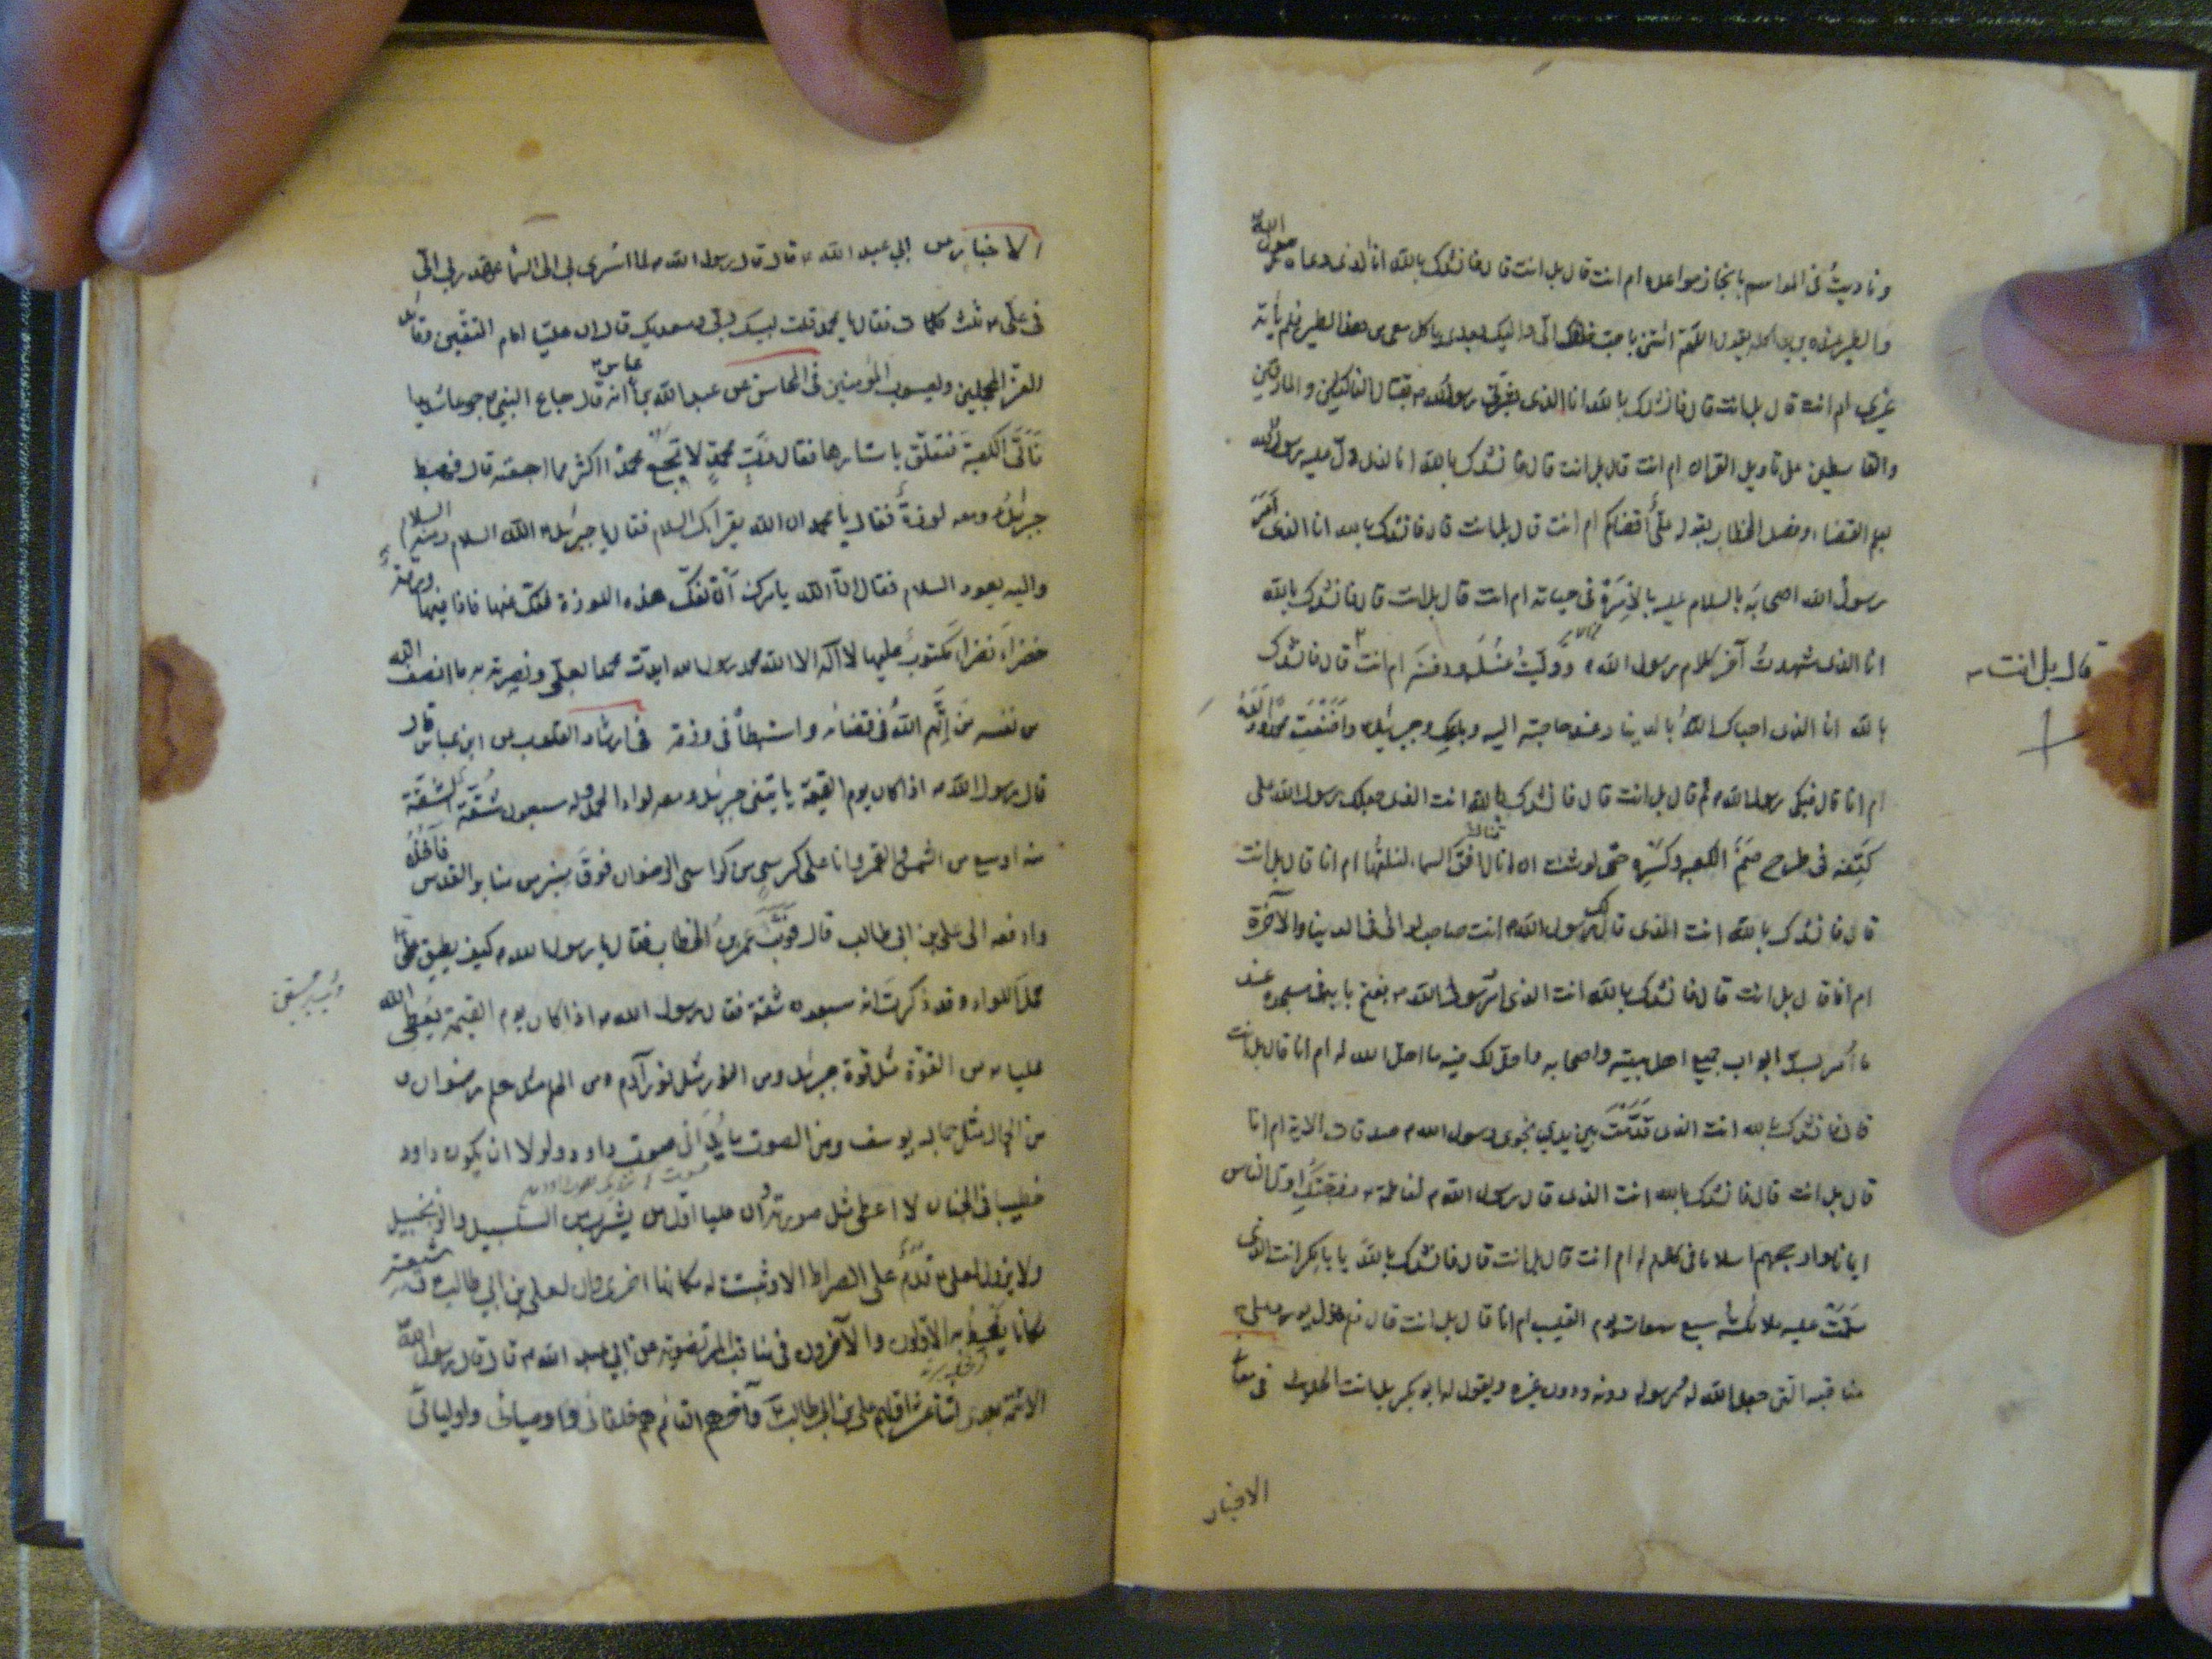 وناديت في المواسم بانجاز مواعده ام انت قال بل انت قال فانشدك بالله انا الذي دعاه رسول الله
والطير عنده يريد اكله يقول اللهم ائتني باحب خلقك الي واليك بعدي ياكل معي من هذا الطير فلم يأته
غيري ام انت قال بل انت قال فانشدك بالله انا الذي بشرني رسول الله بقتال الناكثين والمارقين
والقاسطين على تاويل القران ام انت قال بل انت قال فانشدك بالله انا الذي دل عليه رسول الله
بعلم القضاء وفصل الخطاب بقوله علي أقضاكم ام انت قال بل انت قال فانشدك بالله انا الذي أمر
رسول الله اصحابه بالسلام عليه بالإمرة في حياته ام انت قال بل انت قال فانشدك بالله
انا الذي شهدت آخر كلام رسول الله وولّيت غسله ودفنه ام انت قال فانشدك
قال بل انت
بالله انا الذي حباك الله بالدينار عند حاجته اليه وباعك جبرئيل واضفت محمدا
ام انا قال فبكى رسول الله ثم قال بل انت قال فانشدك بالله انت الذي جعلك رسول الله على
كتفه في طرح صنم الكعبة وكسره حتى لو شئت ان انال افق السماء لنلتها ام انا قال بل انت
قال فانشدك بالله انت الذي قال لك رسول الله انت صاحب لوائي في الدنيا والآخرة
ام انا قال بل انت قال فانشدك بالله انت الذي امر رسول الله بفتح بابه في مسجده عند
ما أمر بسد ابواب جميع اهل بيته واصحابه واحل لك فيه ما احل الله له ام انا قال بل انت
قال فانشدك بالله انت الذي قدمت بين يدي نجوى رسول الله صدقات الاية ام انا
قال بل انت قال فانشدك بالله انت الذي قال رسول الله لفاطمة زوجتك اول الناس
ايمانا وارجحهم اسلاما في كلام له ام انت قال بل انت قال فانشدك بالله يا با بكر انت الذي
سلمت عليه ملائكة سبع سموات يوم القليب ام انا قال بل انت قال فلم يزل يورد علي
مناقبه التي جعل الله له ورسوله دونه ودون غيره ويقول له ابو بكر بل انت الحديث في معاني
الاخبار
الاخبار عن ابي عبد الله قال قال رسول الله لما اسري بي الى السماء عهد ربي الي
في علي ثلث كلمات فقال يا محمد قلت لبيك ربي وسعديك قال ان عليا امام المتقين وقائد
الغر المحجلين ويعسوب المؤمنين في المحاسن عن عبد الله بن عباس انه قال جاع النبي جوعا شديدا
فأتى الكعبة فتعلق باستارها فقال رب محمد لا تجع محمدا اكثر مما اجعته قال فهبط
جبرئيل ومعه لوزة فقال يا محمد ان الله يقرا بك السلام فقال يا جبرئيل الله السلام ومنه السلام
واليه يعود السلام فقال ان الله يامرك ان تفك هذه اللوزة ففك عنها فاذا فيها ورقة
خضراء نضراء مكتوب عليها لا اله الا الله محمد رسول الله ايدت محمدا بعلي ونصرته به ما انصف الله
من نفسه من اتهم الله في قضائه واستبطأ في رزقه في ارشاد القلوب عن ابن عباس قال
قال رسول الله اذا كان يوم القيمة ياتيني جبرئيل ومعه لواء الحمد وله سبعون شقة الشقة
منه اوسع من الشمس والقمر وانا على كرسي من كراسي الرضوان فوق منبر من منابر القدس فآخذه
وادفعه الى علي بن ابي طالب قال فوثب عمر بن الخطاب فقال يا رسول الله كيف يطيق علي
حمل اللواء وقد ذكرت انه سبعون شقة فقال رسول الله اذا كان يوم القيمة يعطي الله
عليا من القوة مثل قوة جبرئيل ومن النور مثل نور آدم ومن الحلم مثل حلم رضوان و
من الجمال مثل جمال يوسف ومن الصوت ما يداني صوت داود ولولا ان يكون داود
خطيبا في الجنان لاعطي مثل صوته وأن عليا اول من يشرب من السلسبيل والزنجبيل
ولا يزول لعلي قدم على الصراط الا وثبت له مكانها اخرى وان لعلي بن ابي طالب وشيعته
مكانا يغبطه به الاولون والآخرون في مناقب المرتضوية عن ابي عبد الله قال قال رسول الله
الائمة بعدي اثنا عشر اولهم علي بن ابي طالب وآخرهم القائم هم خلفائي واوصيائي واوليائي